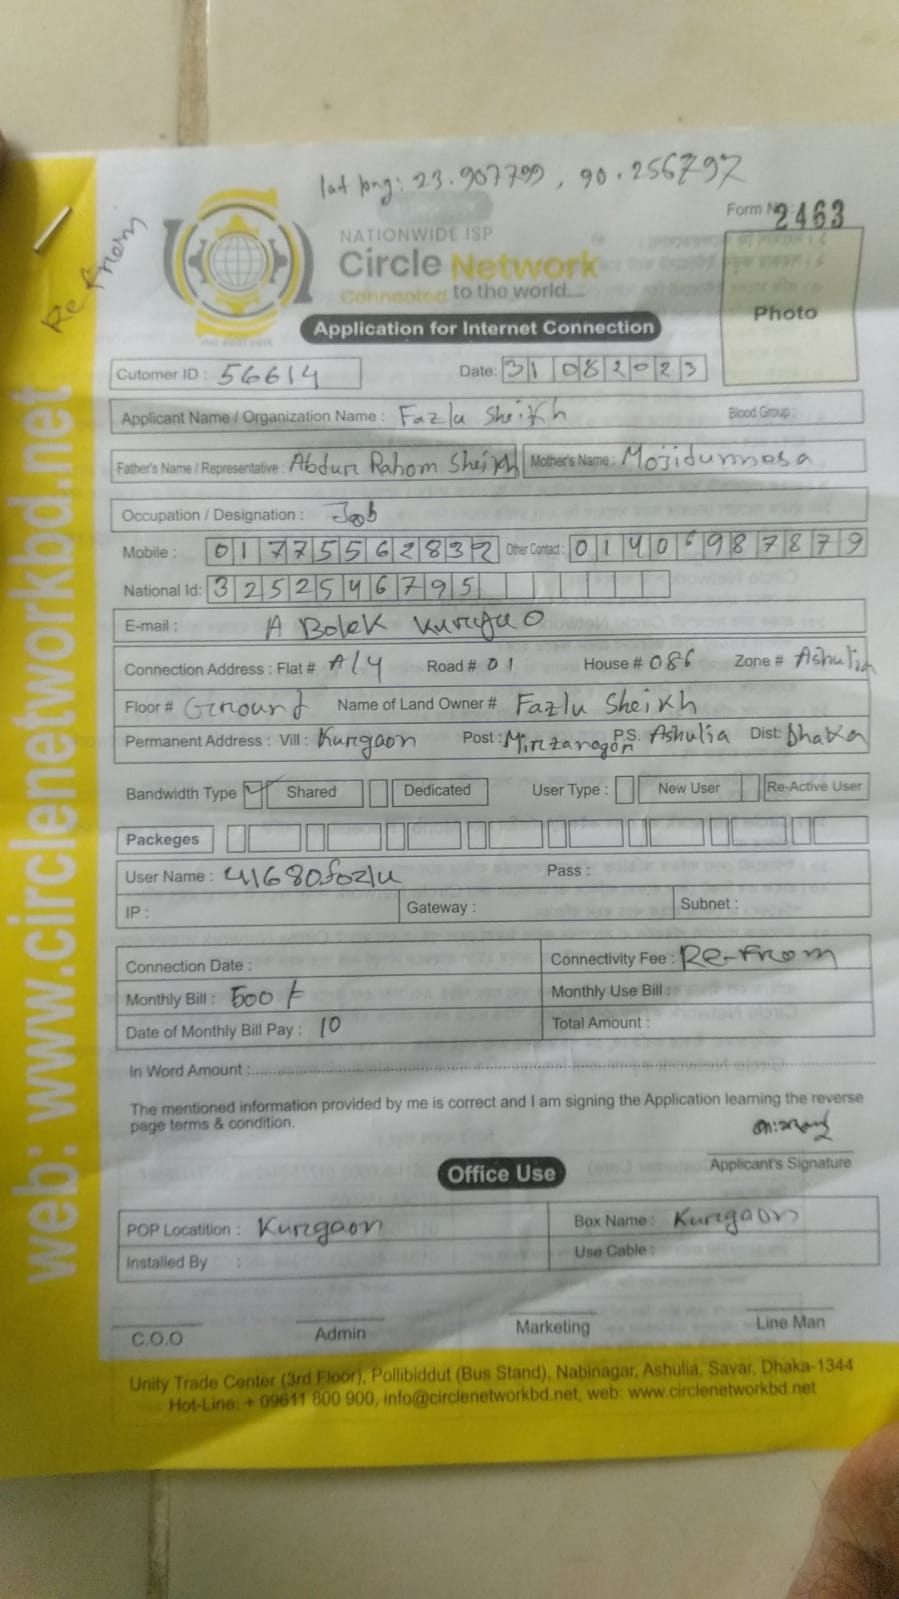 lat long: 23.907799, 90.256797
Re from
Form No: 2463
NATIONWIDE ISP
Circle Network
Connected to the world...
Photo
Application for Internet Connection
Cutomer ID : 56614 Date: 31 08 2023
Applicant Name / Organization Name : Fazlu Sheikh Blood Group :
Father's Name / Representative : Abdur Rahom Sheikh Mother's Name : Mojidunnesa
Occupation / Designation : Job
Mobile : 01775562832 Other Contact : 01406987879
National Id: 3252546795
E-mail : A Bolek Kurgao
Connection Address : Flat # A/4 Road # 01 House # 086 Zone # Ashulia
Floor # Ground Name of Land Owner # Fazlu Sheikh
Permanent Address : Vill : Kurgaon Post : Mirzanagon P.S. Ashulia Dist: Dhaka
Bandwidth Type ✓ Shared Dedicated User Type : New User Re-Active User
Packeges
User Name : 41680fozlu Pass :
IP : Gateway : Subnet :
Connection Date : Connectivity Fee : Re-From
Monthly Bill : 500 Monthly Use Bill :
Date of Monthly Bill Pay : 10 Total Amount :
In Word Amount :
The mentioned information provided by me is correct and I am signing the Application learning the reverse
page terms & condition.
Applicant's Signature
Office Use
POP Locatition : Kurgaon Box Name : Kurgaon
Installed By : Use Cable :
C.O.O Admin Marketing Line Man
Unity Trade Center (3rd Floor), Pollibiddut (Bus Stand), Nabinagar, Ashulia, Savar, Dhaka-1344
Hot-Line: + 09611 800 900, info@circlenetworkbd.net, web: www.circlenetworkbd.net
web: www.circlenetworkbd.net